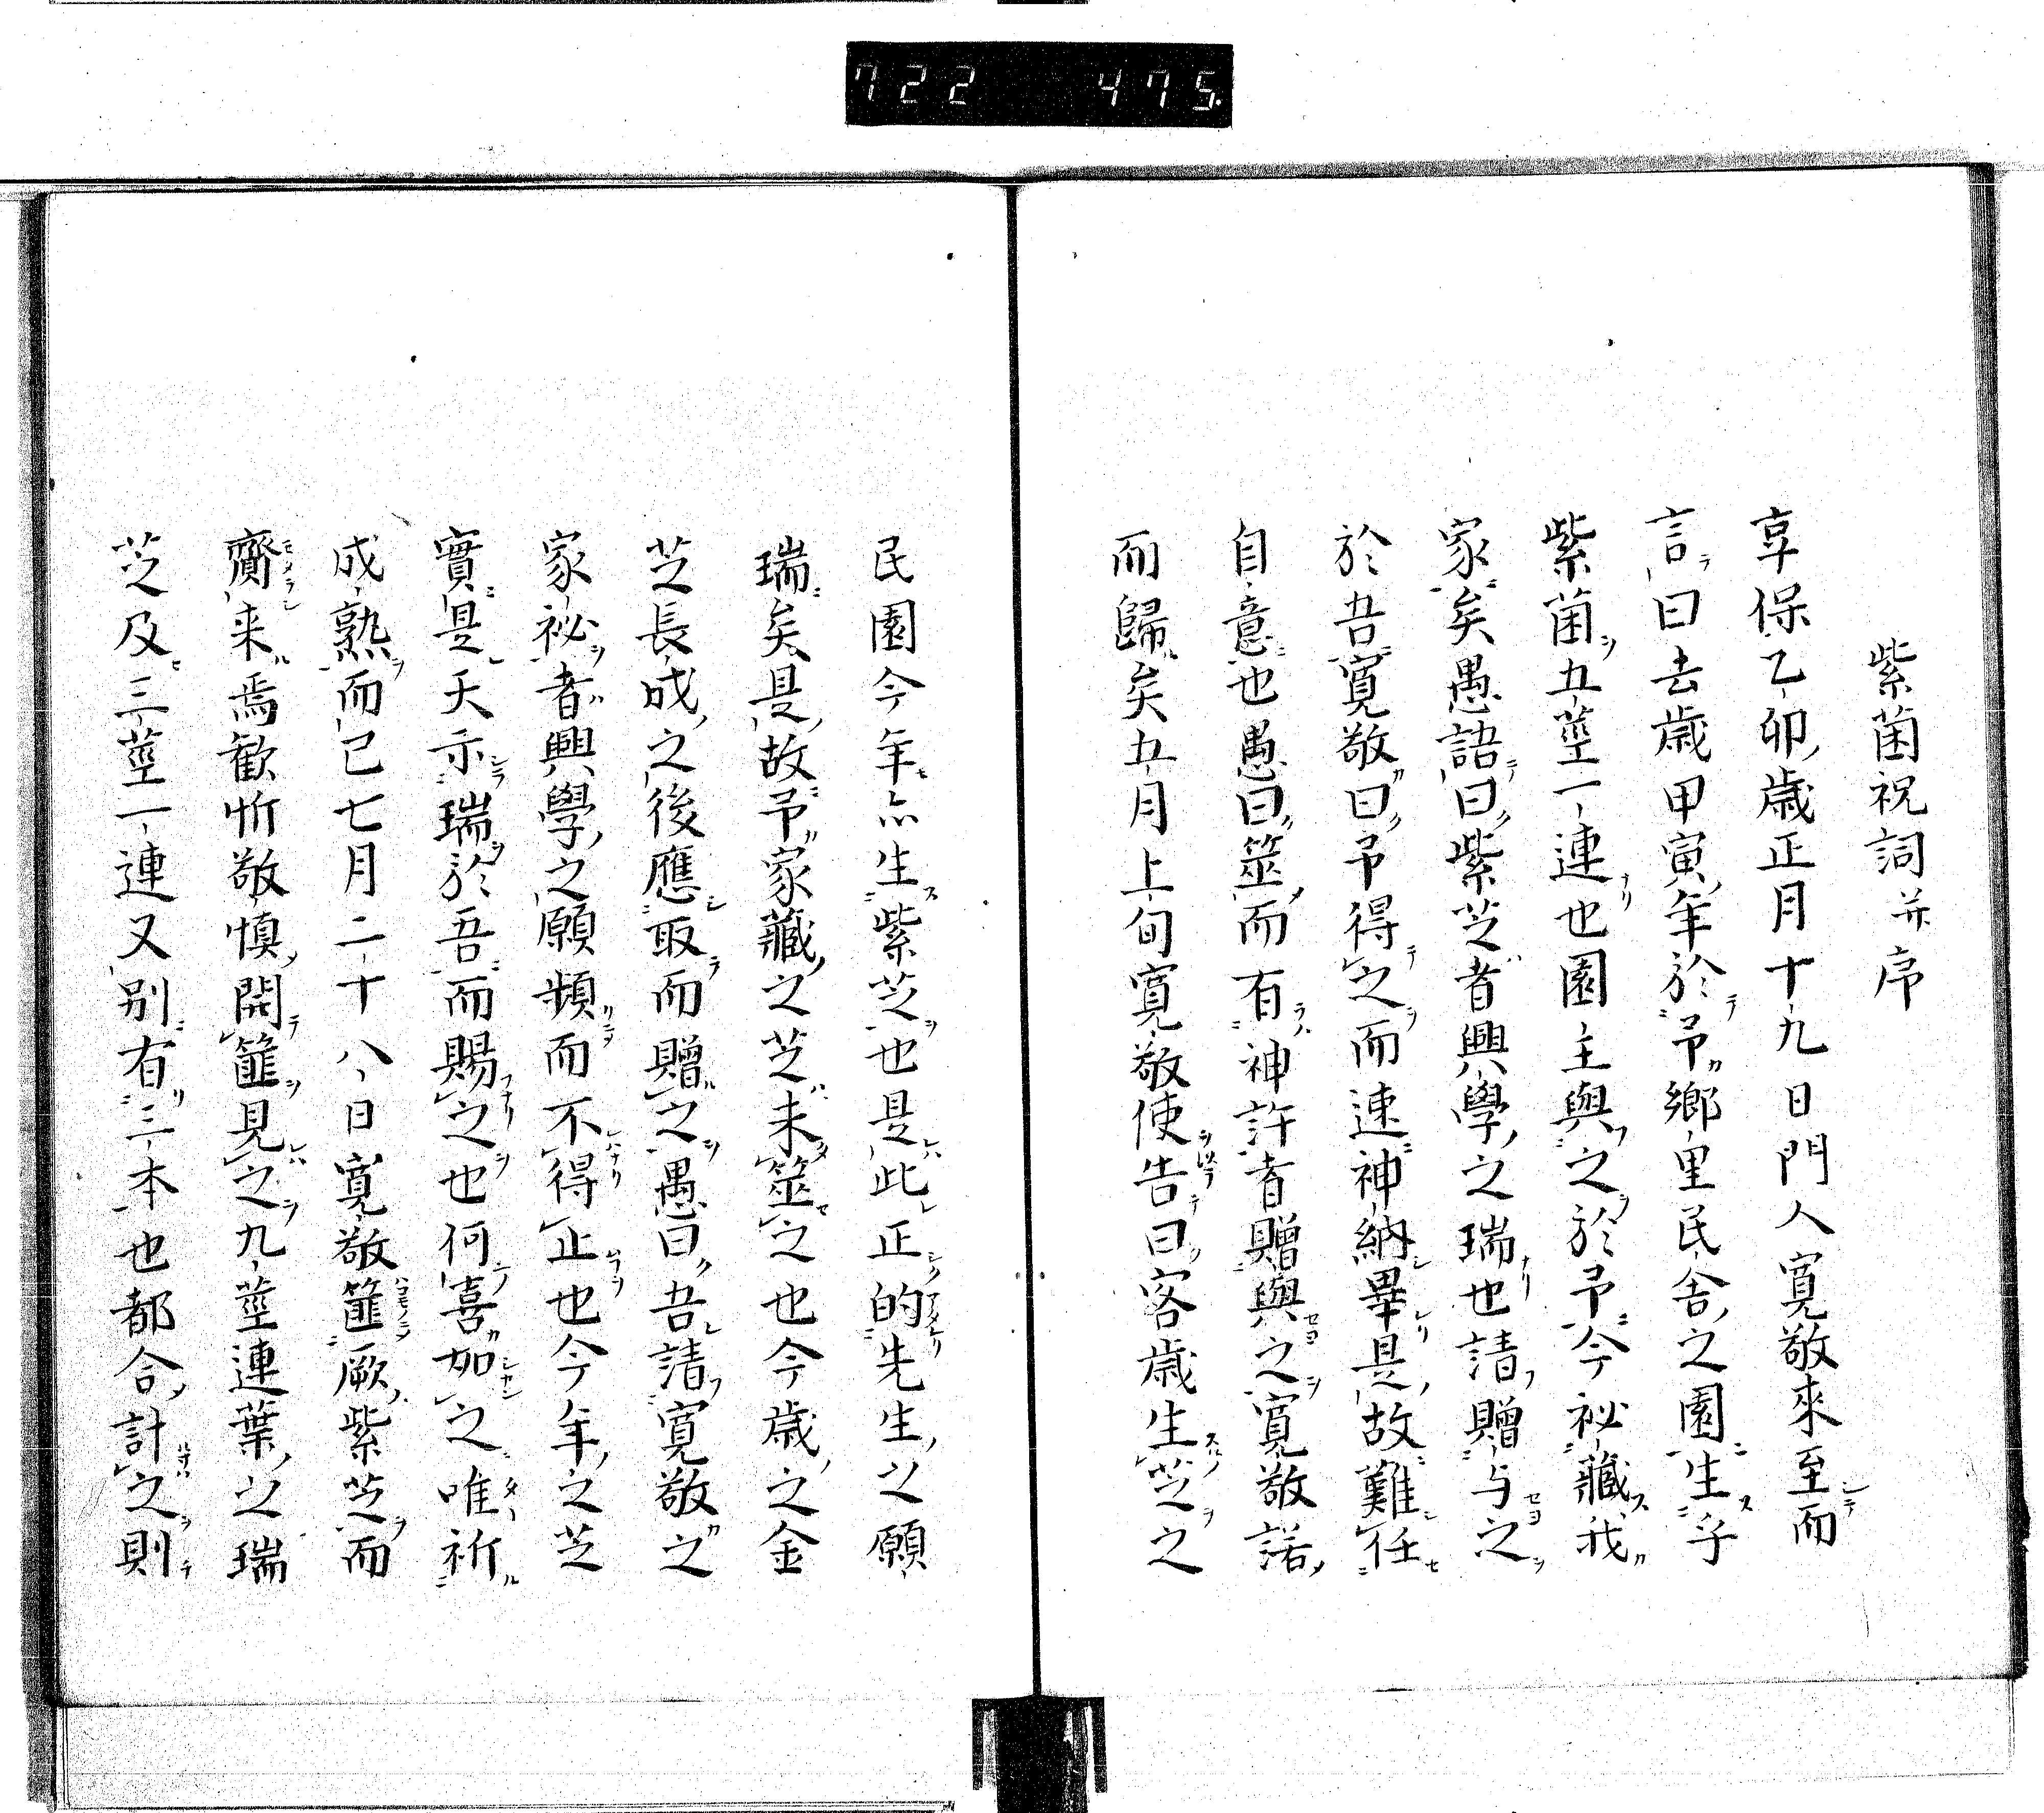 722 475.
紫菌祝詞并序
享保乙卯歳正月十九日門人寛敬來至而
言曰去歳甲寅年於予郷里民舎之園生乎
紫菌五莖一連也園主與之於予今祕藏我
家矣愚語曰紫芝者興學之瑞也請贈与之
於吾寛敬曰予得之而速神納畢是故難任
自意也愚曰筮而有神許者贈與之寛敬諾
而歸矣五月上旬寛敬使告曰客歳生芝之
民園今年亦生紫芝也是此正的先生之願
瑞矣是故予家藏之芝未筮之也今歳之金
芝長成之後應取而贈之愚曰吾請寛敬之
家祕者興學之願頻而不得止也今年之芝
實是天示瑞於吾而賜之也何喜加之唯祈
成熟而已七月二十八日寛敬篚厥紫芝而
齎来焉歓忻敬慎開篚見之九莖連葉之瑞
芝及三莖一連又別有三本也都合計之則